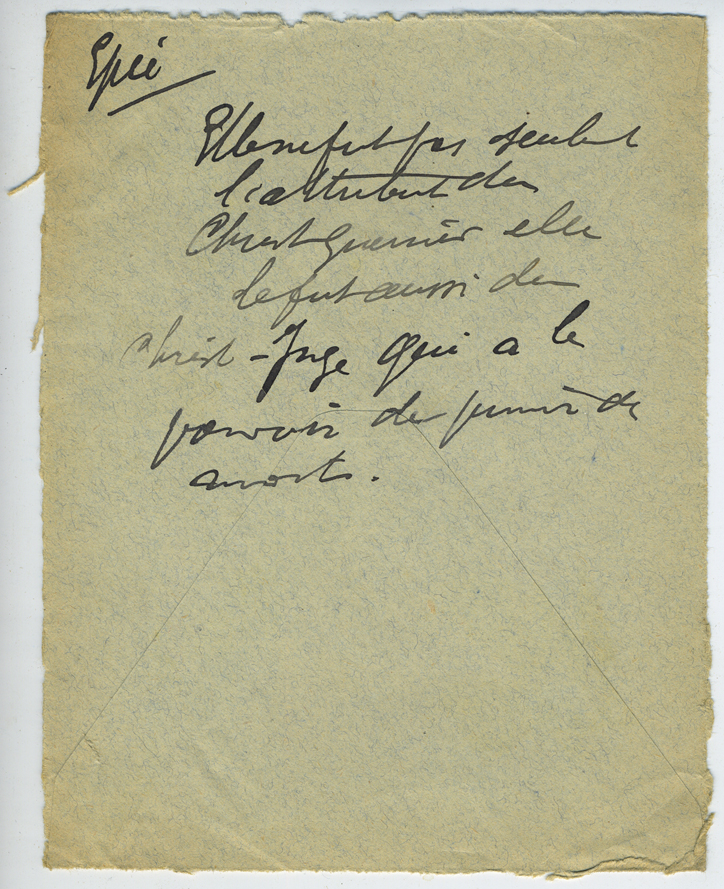 Epée
Elle ne fut pas seulent
l'attribut du
Christ guerrier elle
le fut aussi du
Christ - Juge qui a le
pouvoir de punir de
mort.